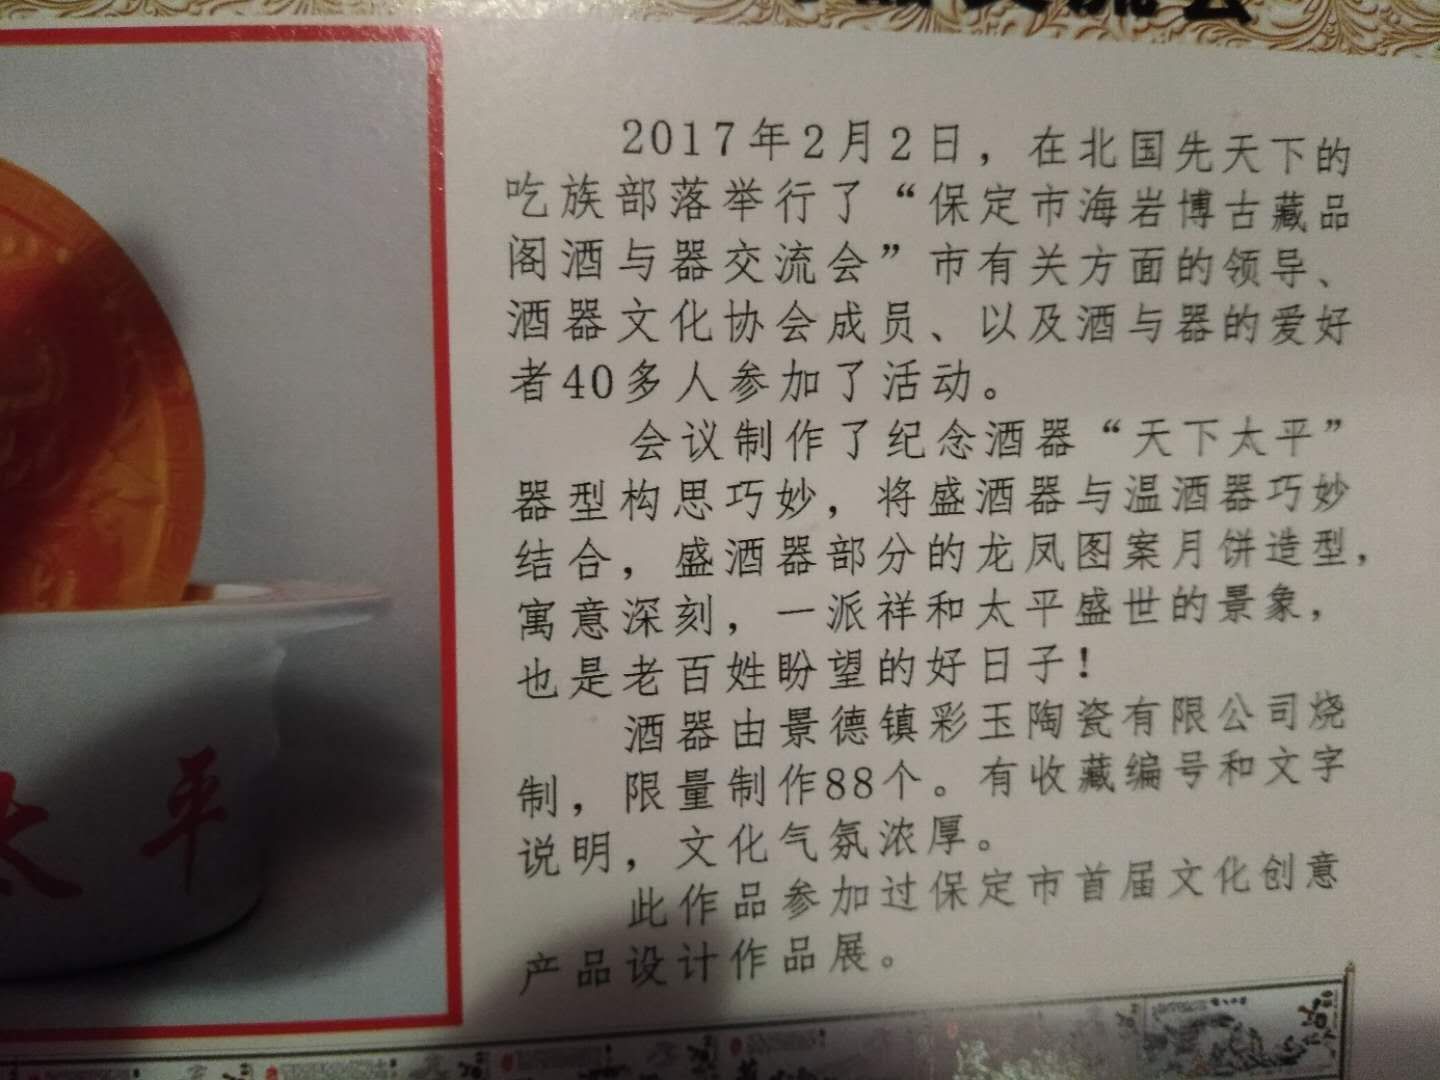 2017年2月2日，在北国先天下的
吃族部落举行了“保定市海岩博古藏品
阁酒与器交流会”市有关方面的领导、
酒器文化协会成员、以及酒与器的爱好
者40多人参加了活动。
会议制作了纪念酒器“天下太平”
器型构思巧妙，将盛酒器与温酒器巧妙
结合，盛酒器部分的龙凤图案月饼造型，
寓意深刻，一派祥和太平盛世的景象，
也是老百姓盼望的好日子！
酒器由景德镇彩玉陶瓷有限公司烧
制，限量制作88个。有收藏编号和文字
说明，文化气氛浓厚。
此作品参加过保定市首届文化创意
产品设计作品展。
太平